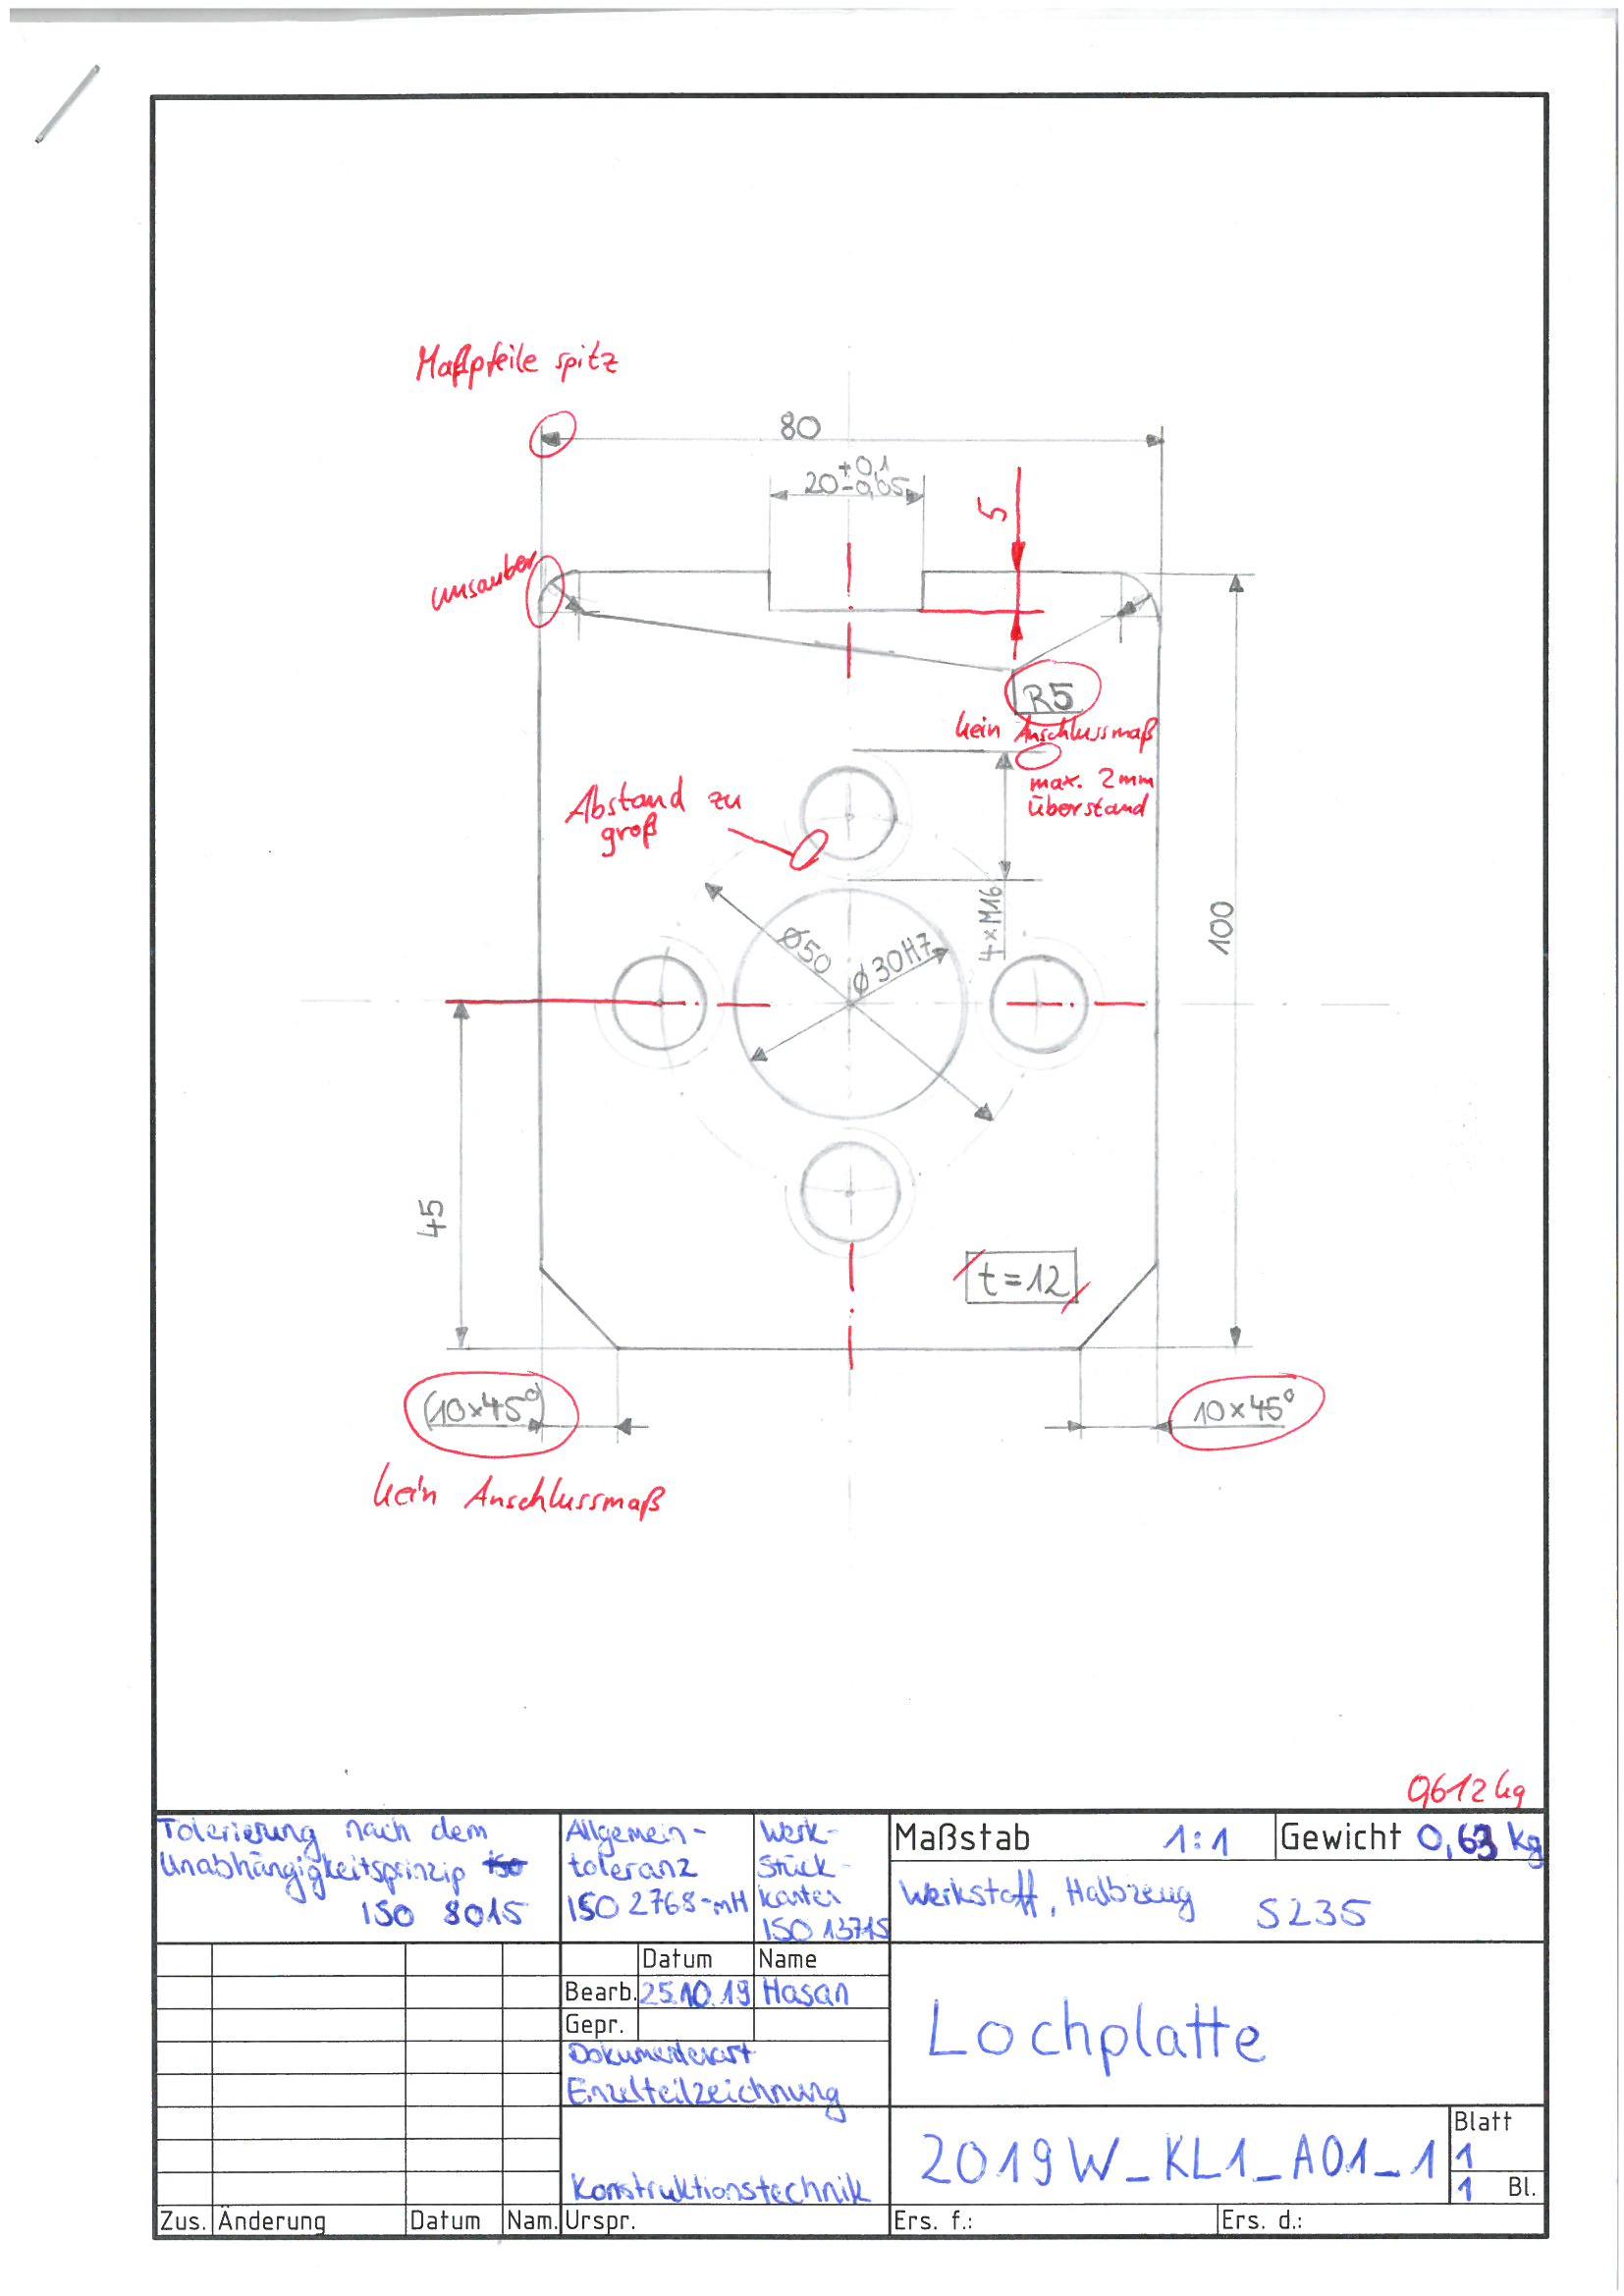 Maßpfeile spitz
80
+0,1
20-0,05
5
unsauber
R5
kein Anschlussmaß
max. 2mm
Überstand
Abstand zu
groß
4xM16
Ø50
Ø30H7
100
45
t=12
(10x45°)
10x45°
kein Anschlussmaß
0,612 kg
Tolerierung nach dem
Unabhängigkeitsprinzip ISO
ISO 8015
Allgemein-
toleranz
ISO 2768-mH
Werk-
stück-
kanten
ISO 13715
Maßstab 1:1
Gewicht 0,63 kg
Werkstoff, Halbzeug S235
Datum Name
Bearb. 25.10.19 Hasan
Gepr.
Dokumentenart
Einzelteilzeichnung
Lochplatte
Konstruktionstechnik
2019W_KL1_A01_1
Blatt
1
1 Bl.
Zus. Änderung Datum Nam. Urspr. Ers. f.: Ers. d.: